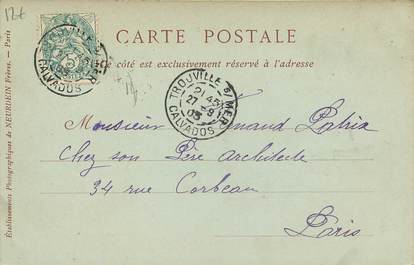 12€
CARTE POSTALE
Ce côté est exclusivement réservé à l'adresse
TROUVILLE S/ MER
CALVADOS
TROUVILLE S/ MER
21 45
27 -9
03
CALVADOS
Monsieur Fernand Latria
Chez son Père Architecte
34 rue Corbeau
Paris
Établissements Photographiques de NEURDEIN Frères. — Paris